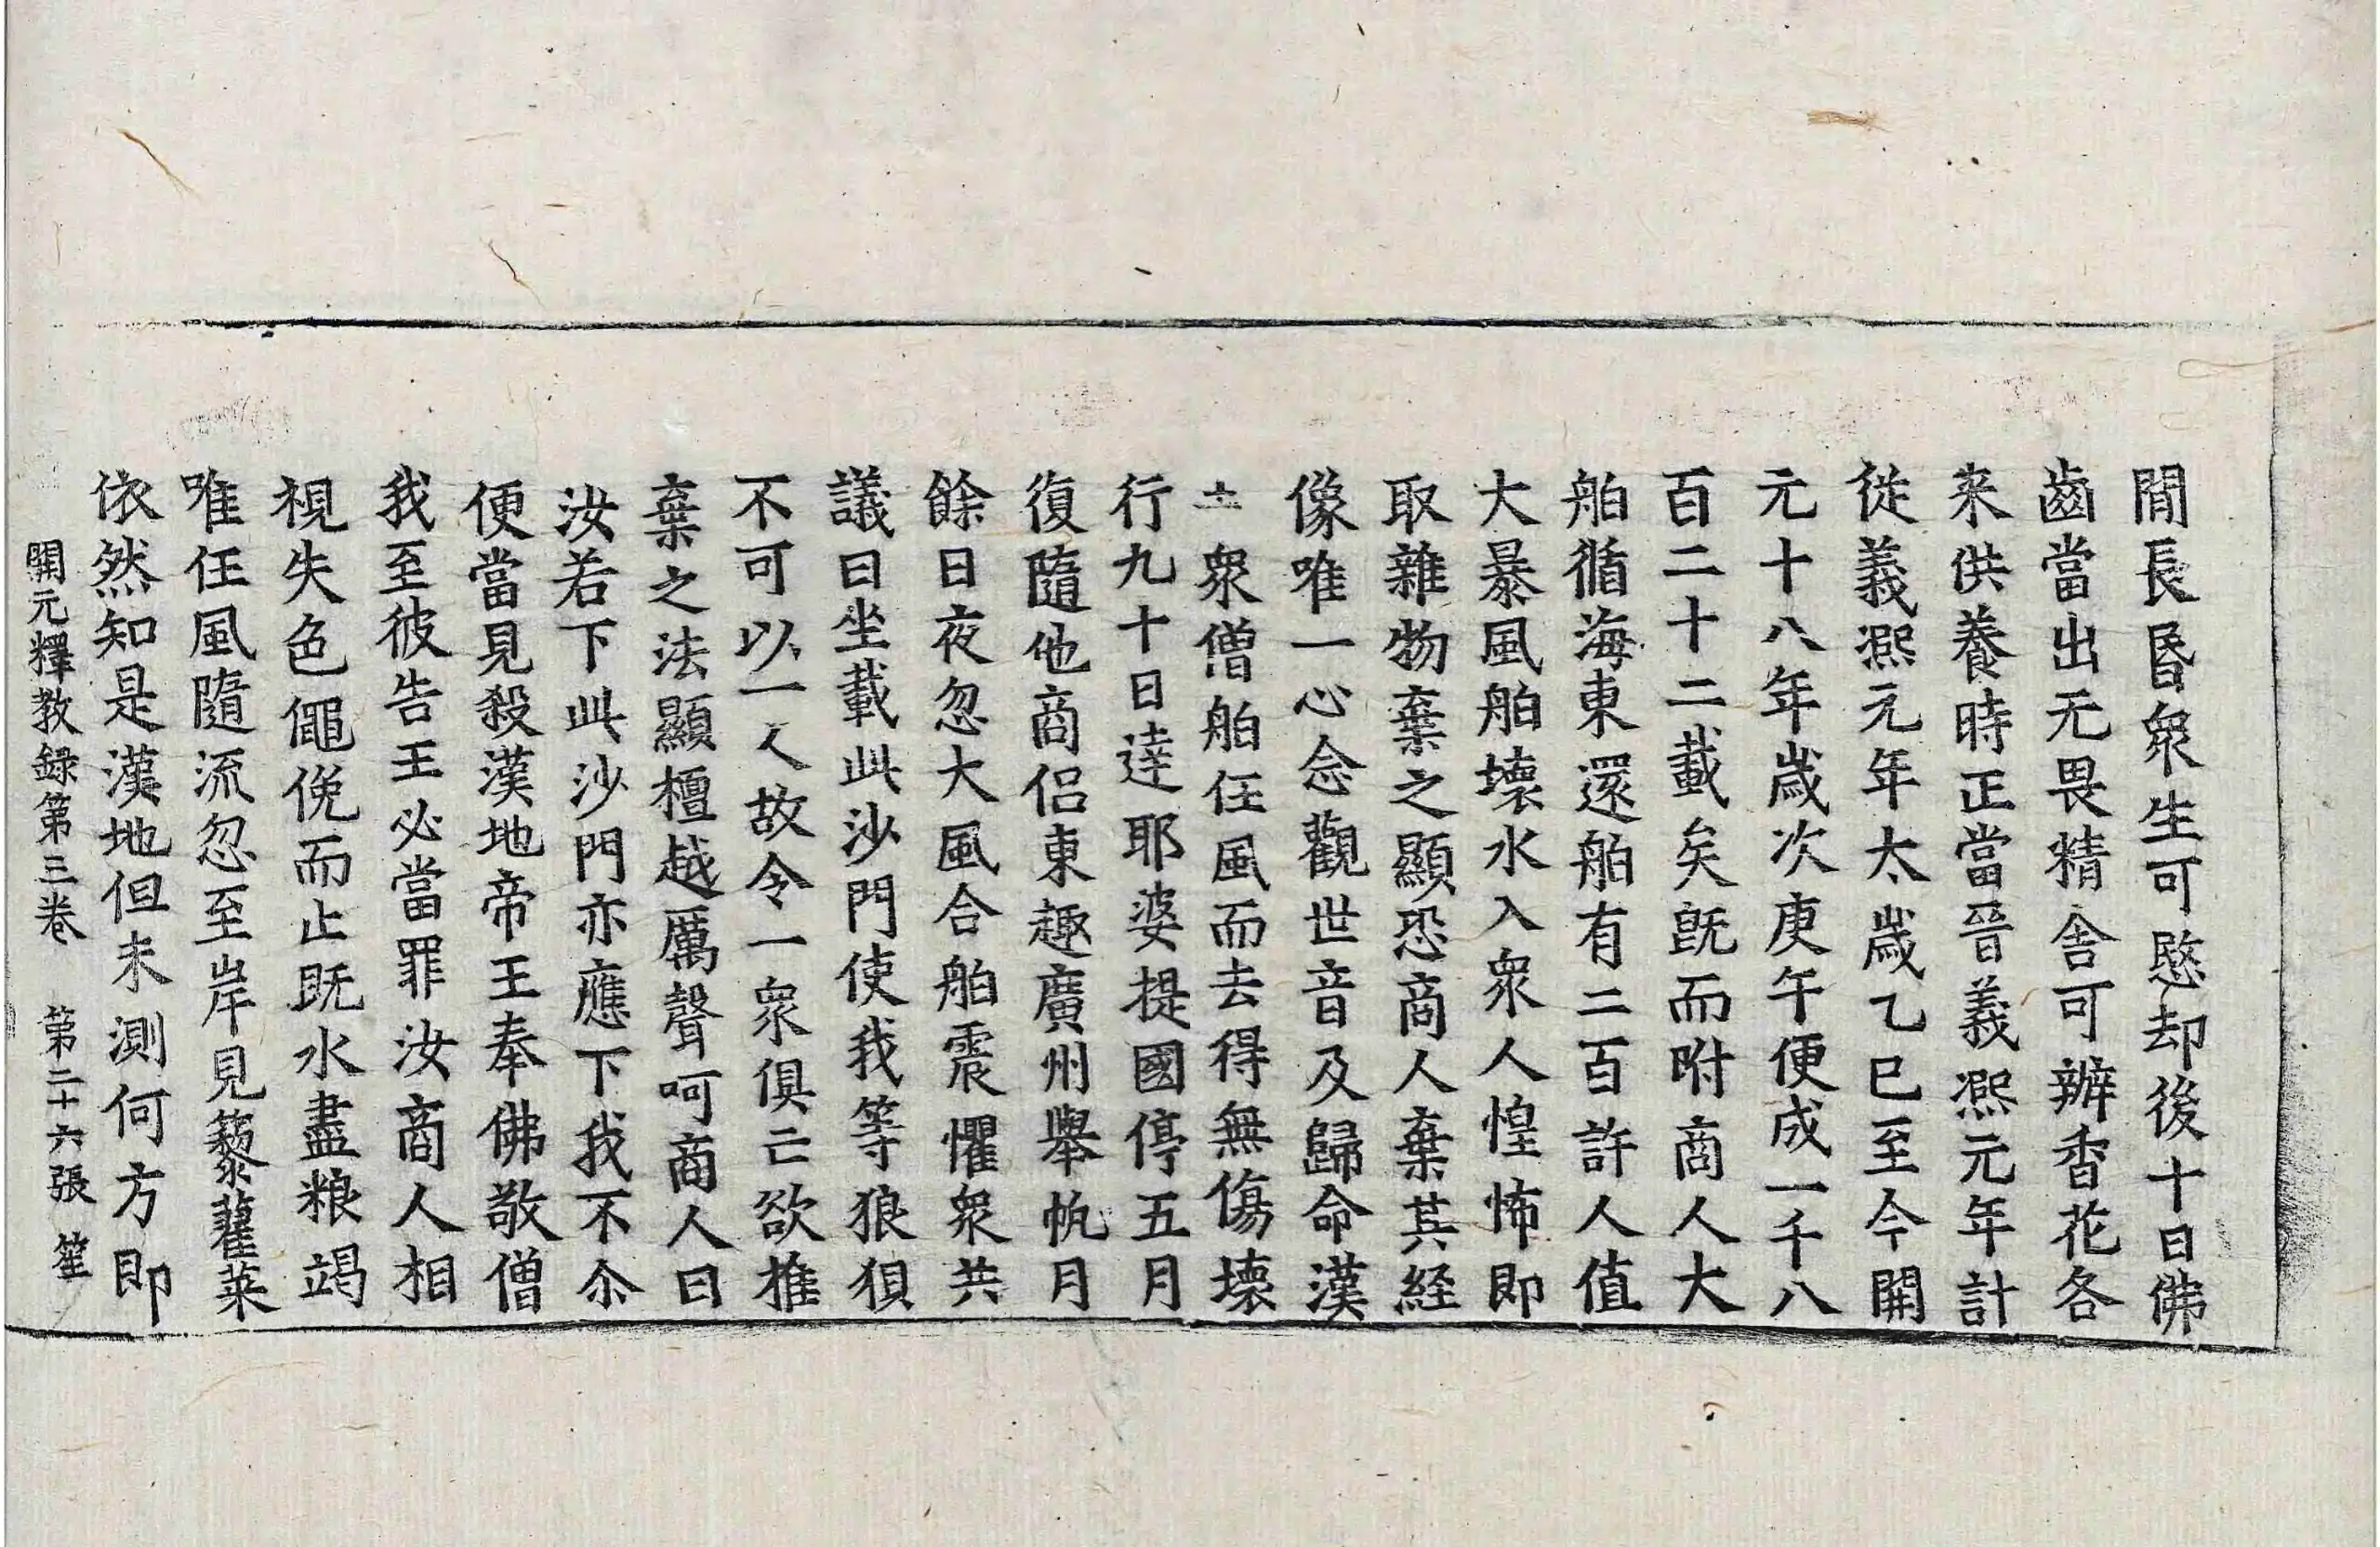 閒長昬衆生可愍却後十日佛
齒當出无畏精舍可辦香花各
来供養時正當晉義熈元年計
従義熈元年太歲乙巳至今開
元十八年歲次庚午便成一千八
百二十二載矣旣而附商人大
舶循海東還舶有二百許人值
大暴風舶壞水入衆人惶怖即
取雜物棄之顯恐商人棄其経
像唯一心念觀世音及歸命漢
土衆僧舶任風而去得無傷壞
行九十日達耶婆提國停五月
復隨他商侶東趣廣州舉帆月
餘日夜忽大風合舶震懼衆共
議曰坐載此沙門使我等狼狽
不可以一人故令一衆俱亡欲推
棄之法顯檀越厲聲呵商人曰
汝若下此沙門亦應下我不尒
便當見殺漢地帝王奉佛敬僧
我至彼告王必當罪汝商人相
視失色僶俛而止旣水盡粮竭
唯任風隨流忽至岸見藜藿菜
依然知是漢地但未測何方即
開元釋教録第三卷 第二十六張 笙